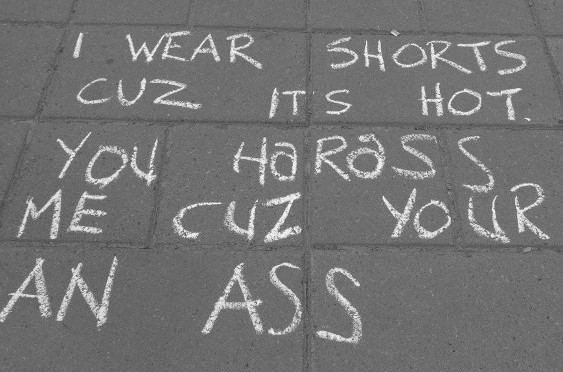 I WEAR SHORTS
CUZ IT'S HOT.
YOU HaRaSS
ME CUZ YOUR
AN ASS